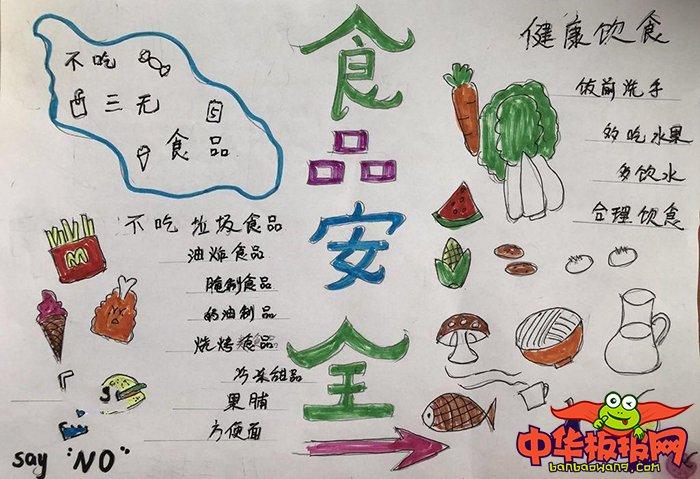 食品安全
不吃
三无
食品
5
不吃垃圾食品
油炸食品
腌制食品
奶油制品
烧烤食品
冷冻甜品
果脯
方便面
say "NO"
健康饮食
饭前洗手
多吃水果
多饮水
合理饮食
中华板报网
banbaowang.com